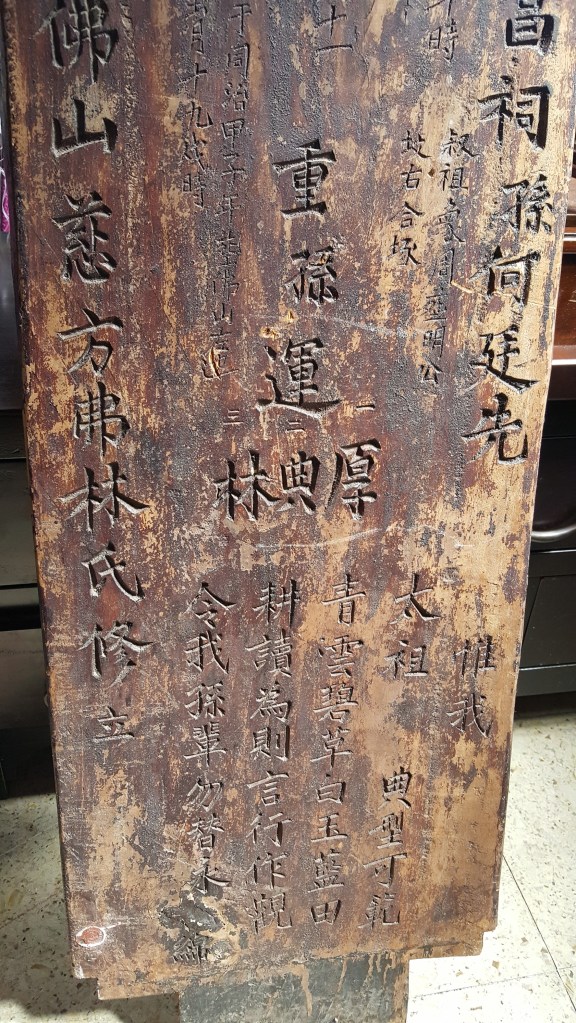 昌祠孫何廷先
叔祖
明公
坟右合坂
時
十一
重孫運
一 厚
二 典
三 林
于同治甲子年 佛山
月十九戌時
佛山慈方佛林氏修立
惟我
太祖 典型可範
青雲碧草白玉藍田
耕讀為則言行作觀
令我孫輩勿替永綿